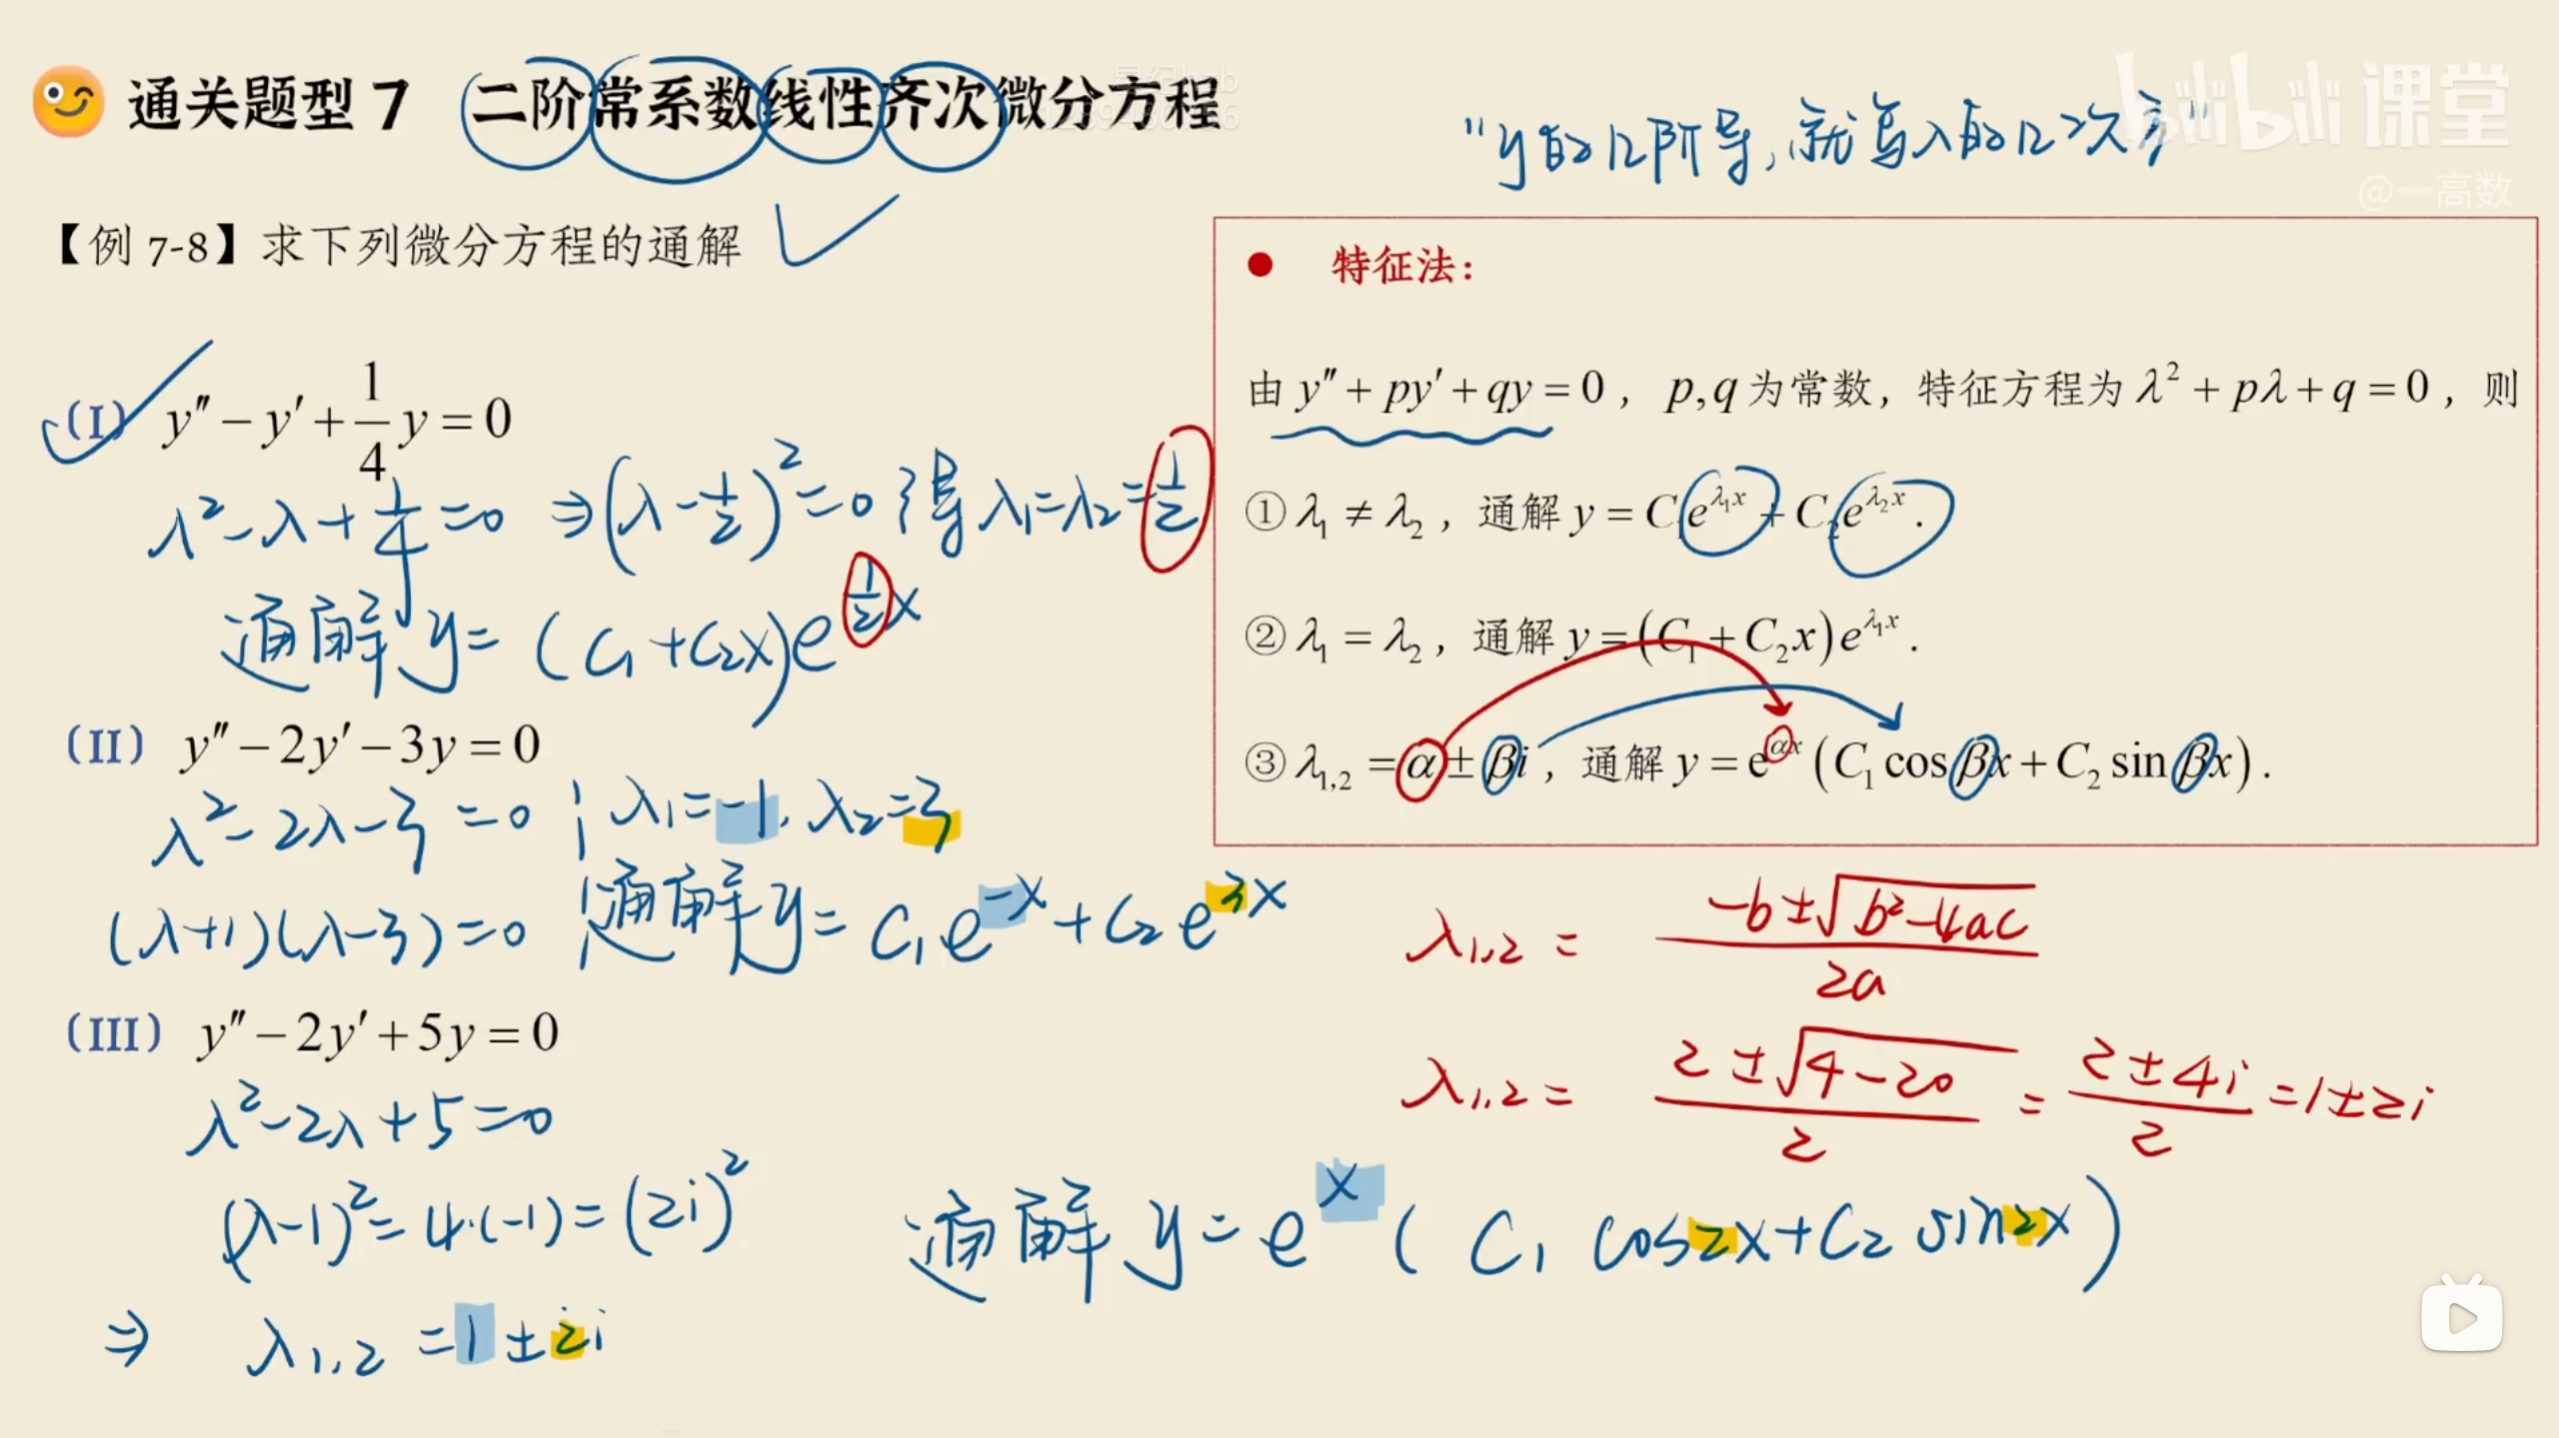 通关题型 7 二阶常系数线性齐次微分方程
bilibili 课堂
@一高数
"y的几阶导,就写λ的几次方"
【例 7-8】求下列微分方程的通解
(I) y″ − y′ + 1/4 y = 0
λ² − λ + 1/4 = 0 ⇒ (λ − 1/2)² = 0 得 λ₁ = λ₂ = 1/2
通解 y = (C₁ + C₂x)e^{1/2 x}
(II) y″ − 2y′ − 3y = 0
λ² − 2λ − 3 = 0
(λ+1)(λ−3) = 0
λ₁ = −1, λ₂ = 3
通解 y = C₁e^{−x} + C₂e^{3x}
(III) y″ − 2y′ + 5y = 0
λ² − 2λ + 5 = 0
(λ−1)² = 4·(−1) = (2i)²
⇒ λ₁,₂ = 1 ± 2i
● 特征法:
由 y″ + py′ + qy = 0, p,q 为常数, 特征方程为 λ² + pλ + q = 0, 则
① λ₁ ≠ λ₂, 通解 y = C₁e^{λ₁x} + C₂e^{λ₂x}.
② λ₁ = λ₂, 通解 y = (C₁ + C₂x)e^{λ₁x}.
③ λ₁,₂ = α ± βi, 通解 y = e^{αx}(C₁ cos βx + C₂ sin βx).
λ₁,₂ = (−b ± √(b²−4ac)) / 2a
λ₁,₂ = (2 ± √(4−20)) / 2 = (2 ± 4i) / 2 = 1 ± 2i
通解 y = e^x (C₁ cos2x + C₂ sin2x)